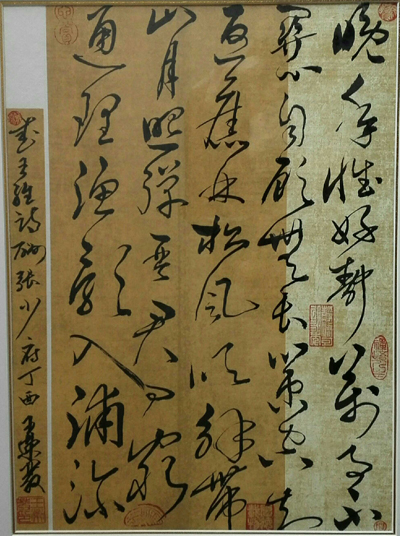 晚年惟好靜萬事不
關心自顧無長策空知
返舊林松風吹解帶
山月照彈琴君問窮
通理漁歌入浦深
王維詩酬張少府丁酉